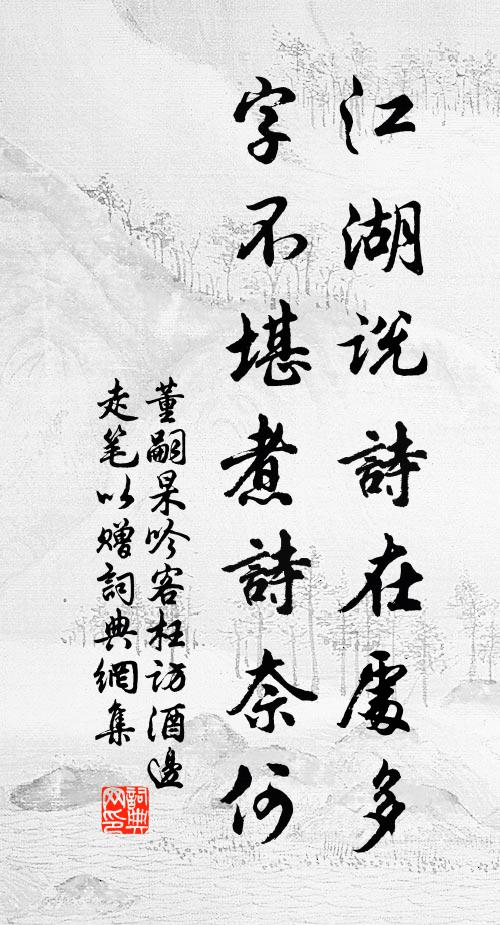 江湖说詩在處多
字不堪煮詩奈何
董嗣杲吟客枉访酒邊
走笔以赠詞典網集
詞典
网印